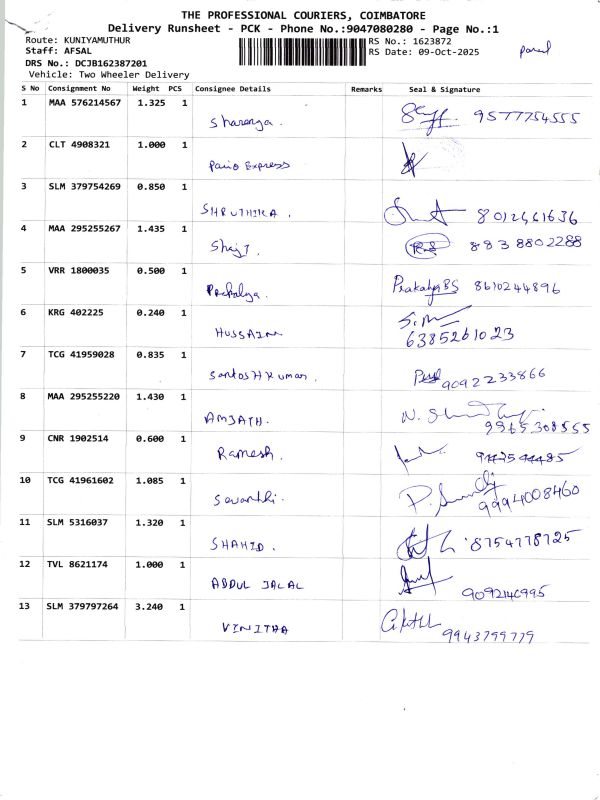 THE PROFESSIONAL COURIERS, COIMBATORE
Delivery Runsheet - PCK - Phone No.:9047080280 - Page No.:1
Route: KUNIYAMUTHUR
RS No.: 1623872
parcel
Staff: AFSAL
RS Date: 09-Oct-2025
DRS No.: DCJB162387201
Vehicle: Two Wheeler Delivery
S No Consignment No Weight PCS Consignee Details Remarks Seal & Signature
1 MAA 576214567 1.325 1
Sharenya. 9577754555
2 CLT 4908321 1.000 1
Express
3 SLM 379754269 0.850 1
SHRUTHIKA. 8012661636
4 MAA 295255267 1.435 1
8838802288
5 VRR 1800035 0.500 1
Prakalya BS 8610244896
6 KRG 402225 0.240 1
HUSSAIN 6385261023
7 TCG 41959028 0.835 1
Santosh Kumar. 9092233866
8 MAA 295255220 1.430 1
AMJATH. 9965308555
9 CNR 1902514 0.600 1
Ramesh.
10 TCG 41961602 1.085 1
Sevanthi. 9994008460
11 SLM 5316037 1.320 1
SHAHID. 8754778725
12 TVL 8621174 1.000 1
ABDUL JALAL 9092146995
13 SLM 379797264 3.240 1
VINITHA 9943799779